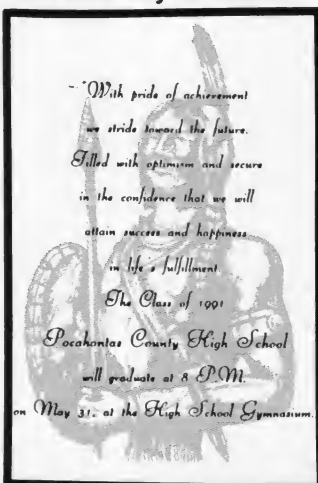 "With pride of achievement
we stride toward the future.
Filled with optimism and secure
in the confidence that we will
attain success and happiness
in life's fulfillment.
The Class of 1991
Pocahontas County High School
will graduate at 8 P.M.
on May 31, at the High School Gymnasium.